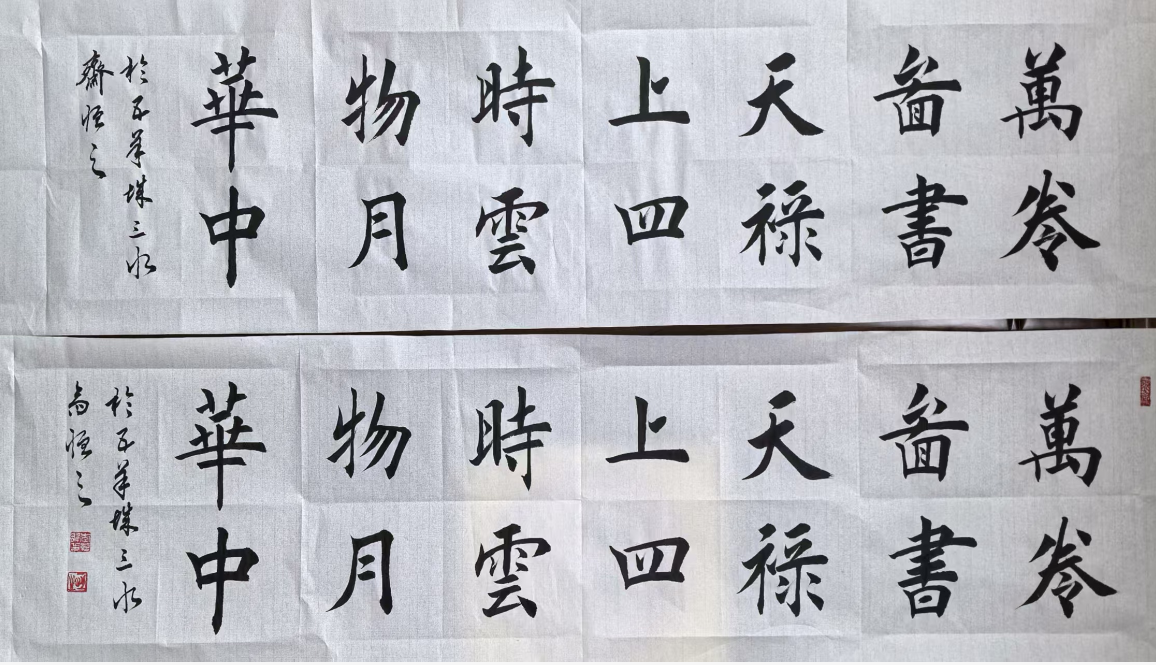 萬卷
啚書
天祿
上四
時雲
物月
華中
於五羊城三水
齋恒之
萬卷
啚書
天祿
上四
時雲
物月
華中
於五羊城三水
恒之